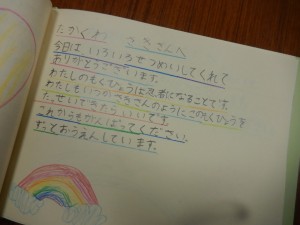 たかくわ さきさんへ
今日はいろいろせつめいしてくれて
ありがとうございます。
わたしのもくひょうは忍者になることです。
わたしもいつかさきさんのようにこのもくひょうを
たっせいできたらいいです。
これからもがんばってください。
ずっとおうえんしています。